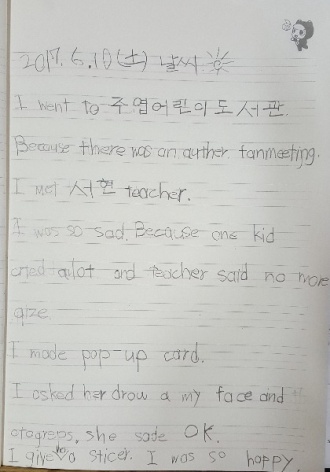 2017. 6. 10 (土) 날씨
I went to 주엽어린이도서관.
Because there was an auther fanmeeting.
I met 서현 teacher.
I was so sad. Because one kid
cried alot and teacher said no more
qize.
I made pop-up card.
I asked her drow a my face and
otogreps, she sade OK.
I give a sticer. I was so happy.